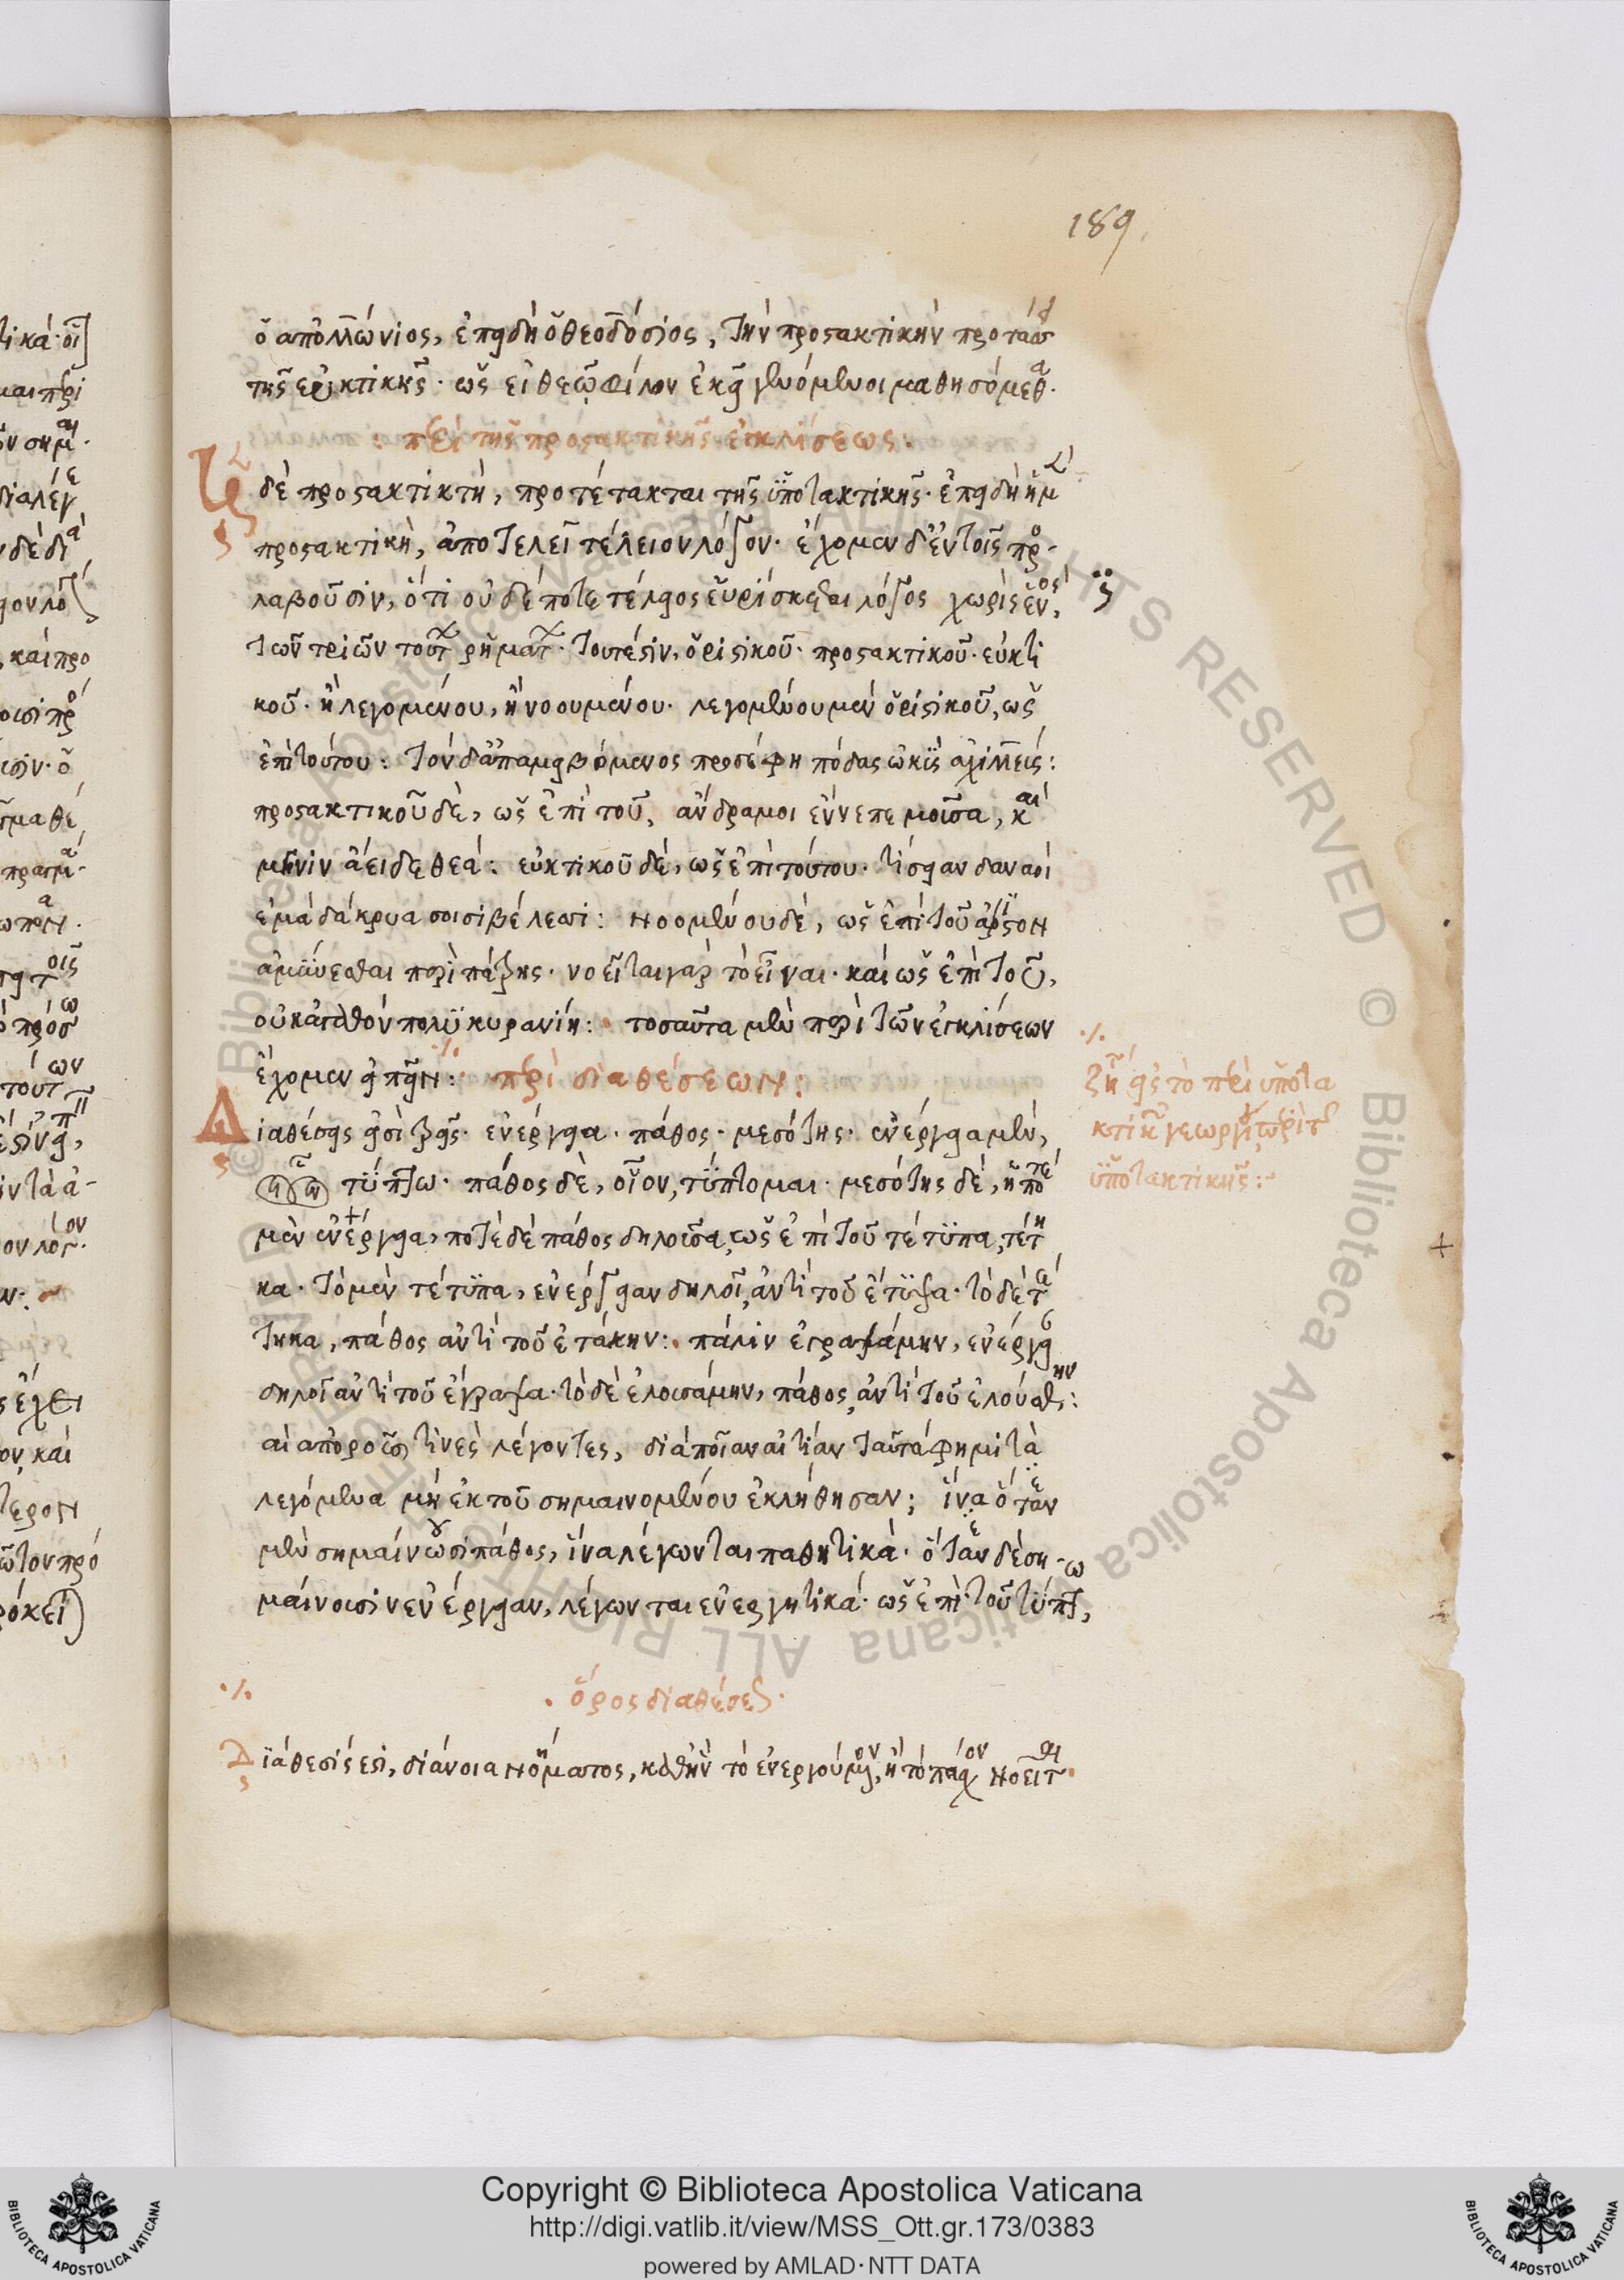 189
ὁ ἀπολλώνιος, ἐπειδὴ ὁ θεοδόσιος, τὴν προστακτικὴν προτάσσει
τῆς εὐκτικῆς· ὡς εἰ θεῷ φίλον ἐκεῖ γενόμενοι μαθησόμεθα·
: περὶ τῆς προστακτικῆς ἐγκλίσεως :
δὲ προστακτικτὴ, προτέτακται τῆς ὑποτακτικῆς· ἐπειδὴ ἡ μὲν
προστακτικὴ, ἀποτελεῖ τέλειον λόγον· ἔχομεν δ' ἐν τοῖς προ-
λαβοῦσιν, ὅτι οὐδέποτε τέλειος εὑρίσκεται λόγος χωρὶς ἑνός,
τῶν τριῶν τούτων ῥημάτων· τουτέστιν, ὁριστικοῦ· προστακτικοῦ· εὐκτι
κοῦ· ἢ λεγομένου, ἢ νοουμένου· λεγομένου μὲν ὁριστικοῦ, ὡς
ἐπὶ τούτου : τὸν δ' ἀπαμειβόμενος προσέφη πόδας ὠκὺς ἀχιλλεύς :
προστακτικοῦ δὲ, ὡς ἐπὶ τοῦ, ἄνδρα μοι ἔννεπε μοῦσα, καὶ
μῆνιν ἄειδε θεά : εὐκτικοῦ δὲ, ὡς ἐπὶ τούτου· τίσειαν δαναοὶ
ἐμὰ δάκρυα σοῖσι βέλεσι : νοομένου δὲ, ὡς ἐπὶ τοῦ ἄριστον
ἀμύνεσθαι περὶ πάτρης· νοεῖται γὰρ τὸ εἶναι· καὶ ὡς ἐπὶ τοῦ,
οὐκ ἀγαθὸν πολυκυρανίη : τοσαῦτα μὲν περὶ τῶν ἐγκλίσεων
ἔχομεν εἰπεῖν : περὶ διαθέσεων :
Διαθέσεις εἰσὶ τρεῖς· ἐνέργεια· πάθος· μεσότης· ἐνέργεια μὲν,
τύπτω· πάθος δὲ, οἷον, τύπτομαι· μεσότης δὲ, ἡ ποτὲ
μὲν ἐνέργεια, ποτὲ δὲ πάθος δηλοῦσα, ὡς ἐπὶ τοῦ τέτυπα, τέτη
κα· τὸ μὲν τέτυπα, ἐνέργειαν δηλοῖ, ἀντὶ τοῦ ἔτυψα· τὸ δὲ τέ
τηκα, πάθος ἀντὶ τοῦ ἐτάκην : πάλιν ἐγραψάμην, ἐνέργειαν
δηλοῖ ἀντὶ τοῦ ἔγραψα· τὸ δὲ ἐλουσάμην, πάθος, ἀντὶ τοῦ ἐλούσθην :
ἀποροῦσι τινὲς λέγοντες, διὰ ποίαν αἰτίαν ταῦτα φημὶ τὰ
λεγόμενα μὴ ἐκ τοῦ σημαινομένου ἐκλήθησαν; ἵνα ὅταν
μὲν σημαίνωσι πάθος, ἵνα λέγωνται παθητικά· ὅταν δὲ ση-
μαίνουσιν ἐνέργειαν, λέγωνται ἐνεργητικά· ὡς ἐπὶ τοῦ τύπτω,
ζήτει εἰς τὸ περὶ ὑποτα
κτικῆς γεωργίου
ὑποτακτικῆς :
· ὅρος διαθέσεως ·
Διάθεσίς ἐστι, διάνοια νοήματος, καθ' ἣν τὸ ἐνεργούμενον, ἢ τὸ πάσχον νοεῖται·
Copyright © Biblioteca Apostolica Vaticana
http://digi.vatlib.it/view/MSS_Ott.gr.173/0383
powered by AMLAD·NTT DATA
BIBLIOTECA APOSTOLICA VATICANA
BIBLIOTECA APOSTOLICA VATICANA